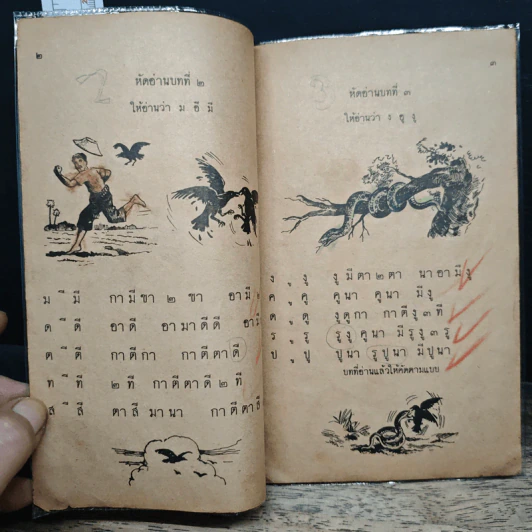 ๒
2
หัดอ่านบทที่ ๒
ให้อ่านว่า ม อี มี
ม ี มี กา มี ขา ๒ ขา อา มี
ด ี ดี อา ดี อา มา ดี ดี อา มี
ต ี ตี กา ตี กา กา ตี ตา ดี
ท ี ที ๒ ที กา ตี ตา ดี ๒ ที
ส ี สี ตา สี มา นา กา ตี ตา สี
๓
3
หัดอ่านบทที่ ๓
ให้อ่านว่า ง อู งู
ง ู งู งู มี ตา ๒ ตา นา อา มี งู
ค ู คู คู นา คู นา มี งู
ด ู ดู งู ดู กา กา ตี งู ๓ ที
ร ู รู รู งู คู นา มี รู งู ๓ รู
ป ู ปู ปู นา รู ปู นา มี ปู นา
บทที่อ่านแล้วให้คัดตามแบบ